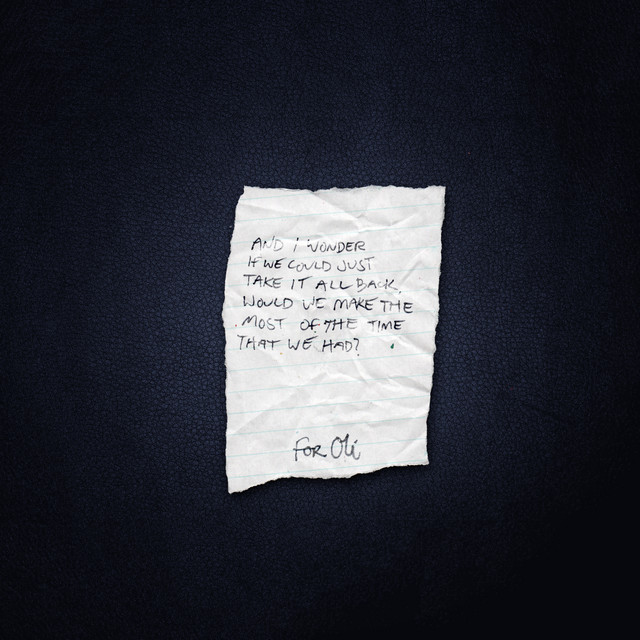 AND I WONDER
IF WE COULD JUST
TAKE IT ALL BACK
WOULD WE MAKE THE
MOST OF THE TIME
THAT WE HAD?
FOR Oli